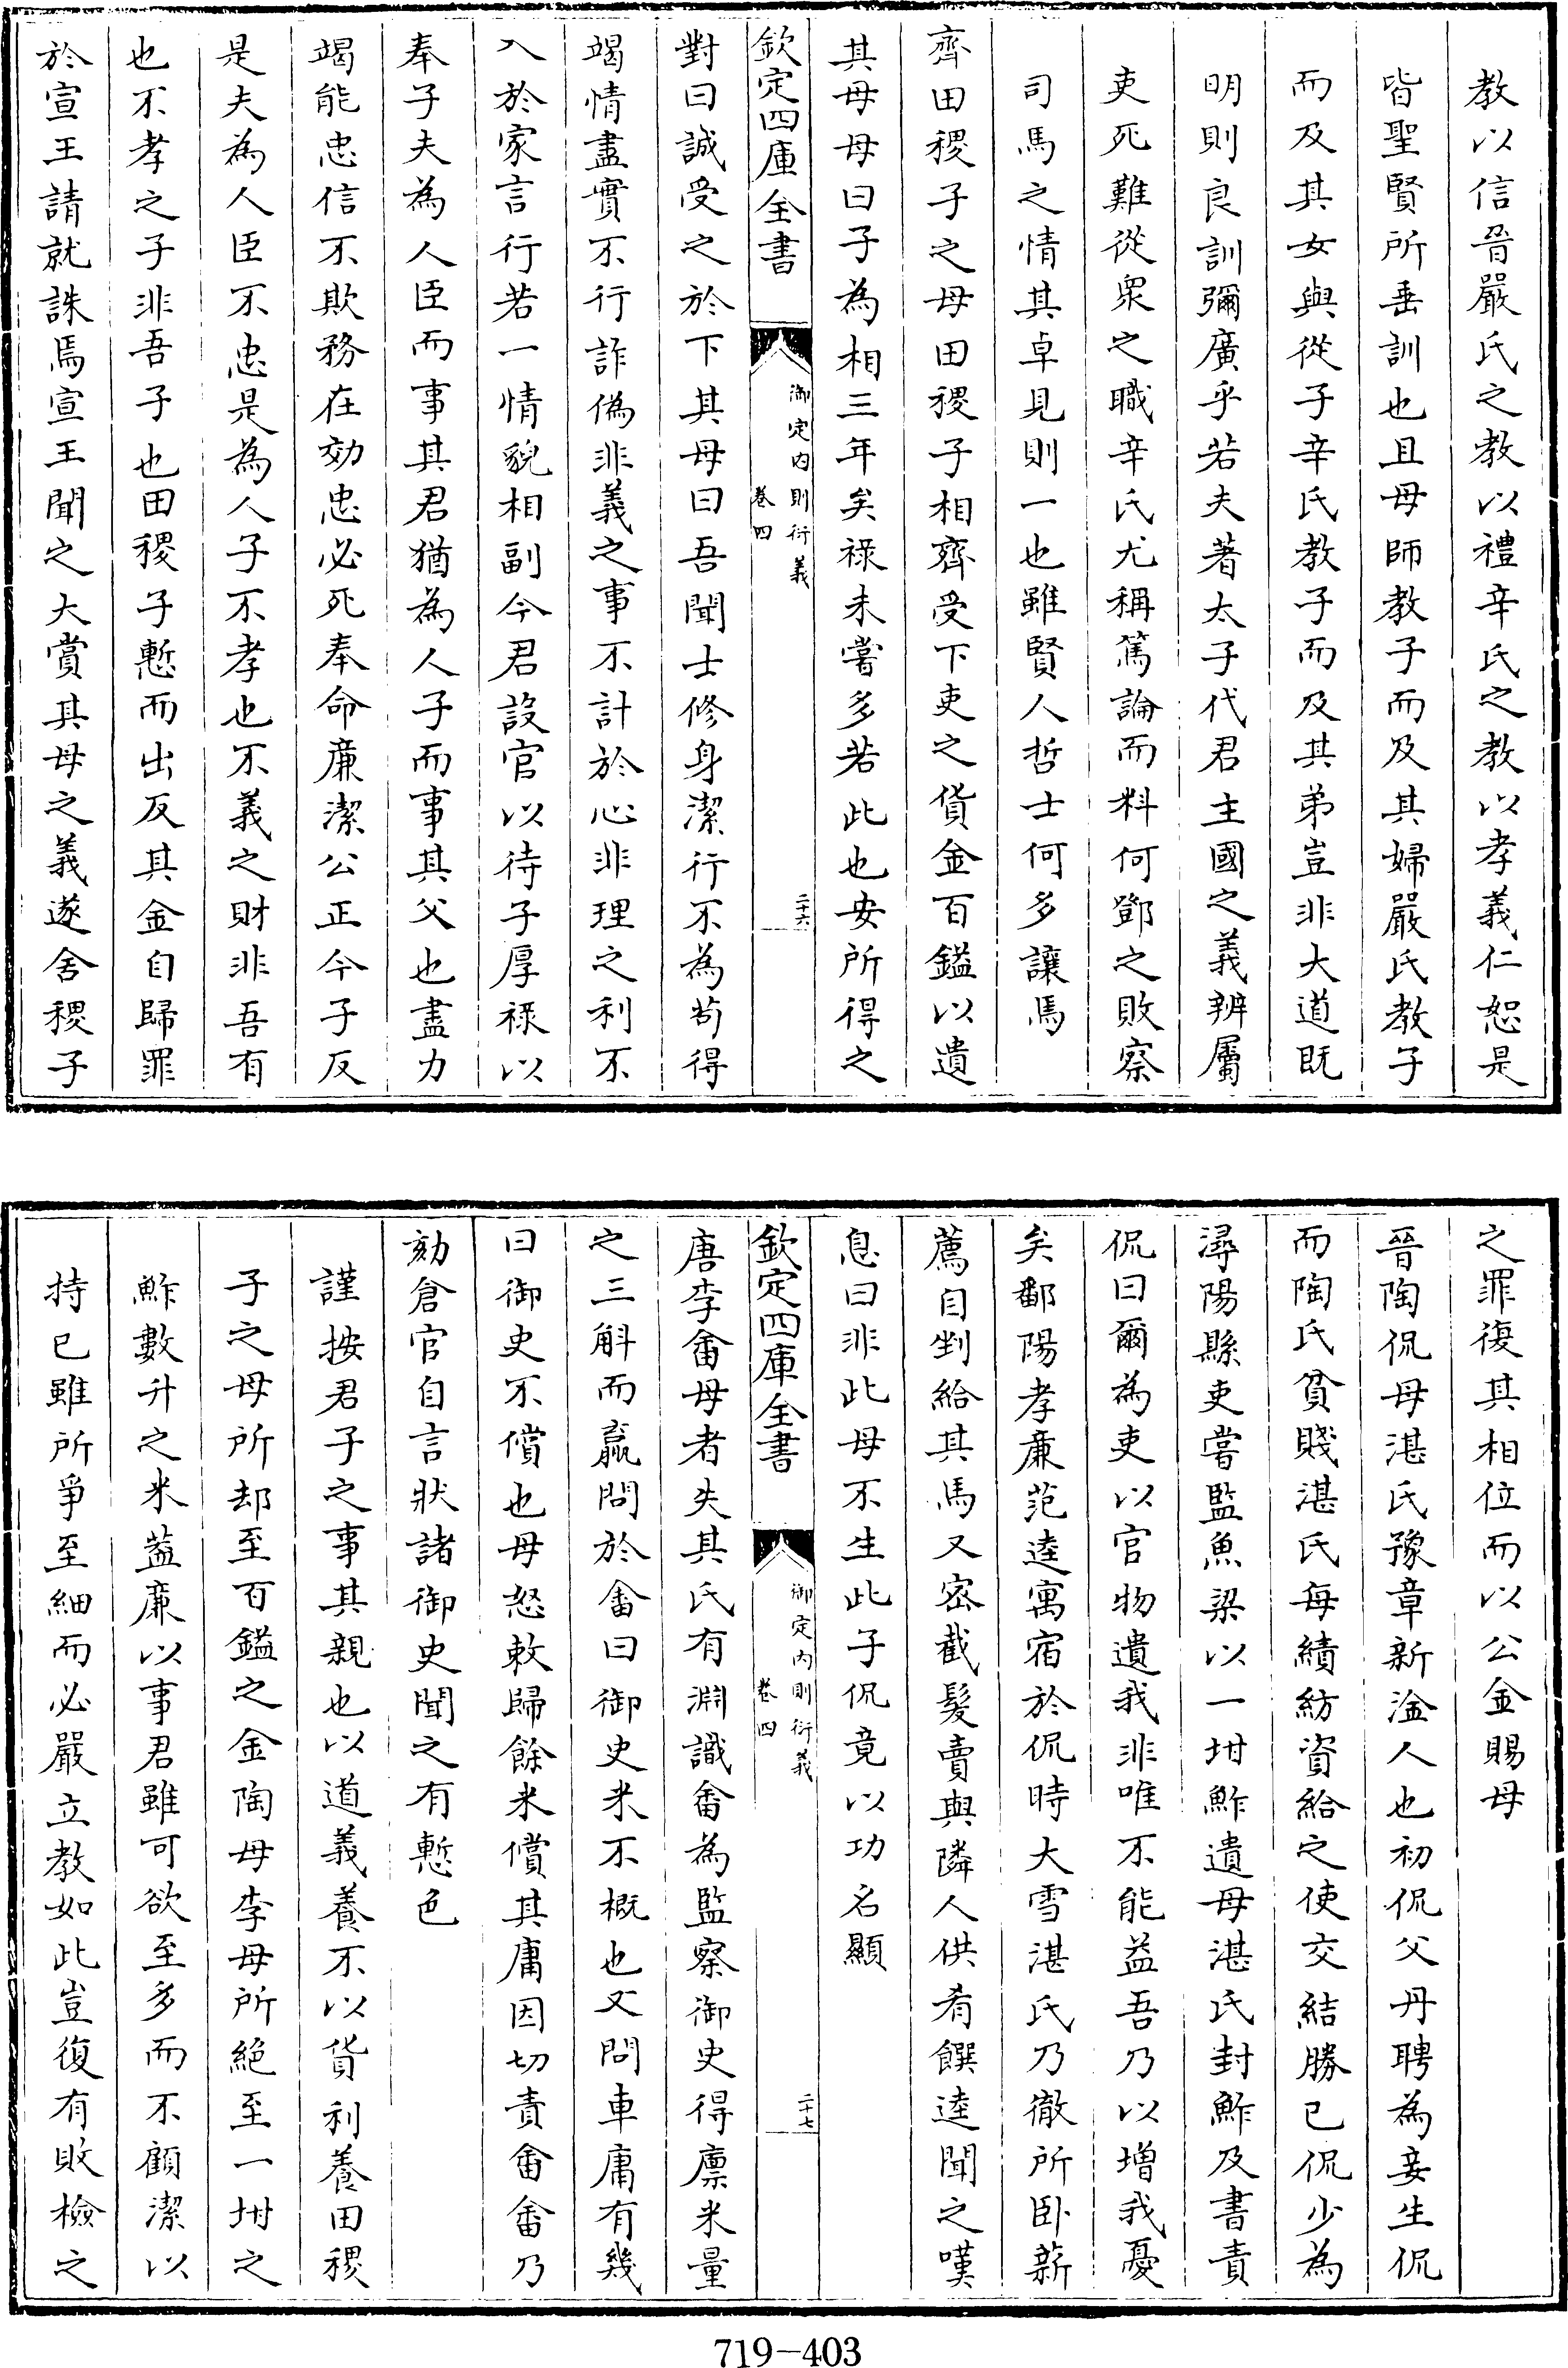 教以信晉嚴氏之教以禮辛氏之教以孝義仁恕是
皆聖賢所垂訓也且母師教子而及其婦嚴氏教子
而及其女與從子辛氏教子而及其弟豈非大道既
明則良訓彌廣乎若夫著太子代君主國之義辨屬
吏死難從衆之職辛氏尤稱篤論而料何鄧之敗察
司馬之情其卓見則一也雖賢人哲士何多讓焉
齊田稷子之母田稷子相齊受下吏之貨金百鎰以遺
其母母曰子為相三年矣祿未嘗多若此也安所得之
欽定四庫全書
御定內則衍義
卷四
二十六
對曰誠受之於下其母曰吾聞士修身潔行不為苟得
竭情盡實不行詐偽非義之事不計於心非理之利不
入於家言行若一情貌相副今君設官以待子厚祿以
奉子夫為人臣而事其君猶為人子而事其父也盡力
竭能忠信不欺務在効忠必死奉命廉潔公正今子反
是夫為人臣不忠是為人子不孝也不義之財非吾有
也不孝之子非吾子也田稷子慙而出反其金自歸罪
於宣王請就誅焉宣王聞之大賞其母之義遂舍稷子
之罪復其相位而以公金賜母
晉陶侃母湛氏豫章新淦人也初侃父丹聘為妾生侃
而陶氏貧賤湛氏每績紡資給之使交結勝已侃少為
潯陽縣吏嘗監魚梁以一坩鮓遺母湛氏封鮓及書責
侃曰爾為吏以官物遺我非唯不能益吾乃以增我憂
矣鄱陽孝廉范逵寓宿於侃時大雪湛氏乃徹所卧薪
薦自剉給其馬又密截髮賣與隣人供肴饌逵聞之嘆
息曰非此母不生此子侃竟以功名顯
欽定四庫全書
御定內則衍義
卷四
二十七
唐李畬母者失其氏有淵識畬為監察御史得廪米量
之三斛而贏問於畬曰御史米不概也又問車庸有幾
曰御史不償也母怒敕歸餘米償其庸因切責畬畬乃
劾倉官自言狀諸御史聞之有慙色
謹按君子之事其親也以道義養不以貨利養田稷
子之母所却至百鎰之金陶母李母所絕至一坩之
鮓數升之米葢廉以事君雖可欲至多而不顧潔以
持已雖所爭至細而必嚴立教如此豈復有敗檢之
719-403